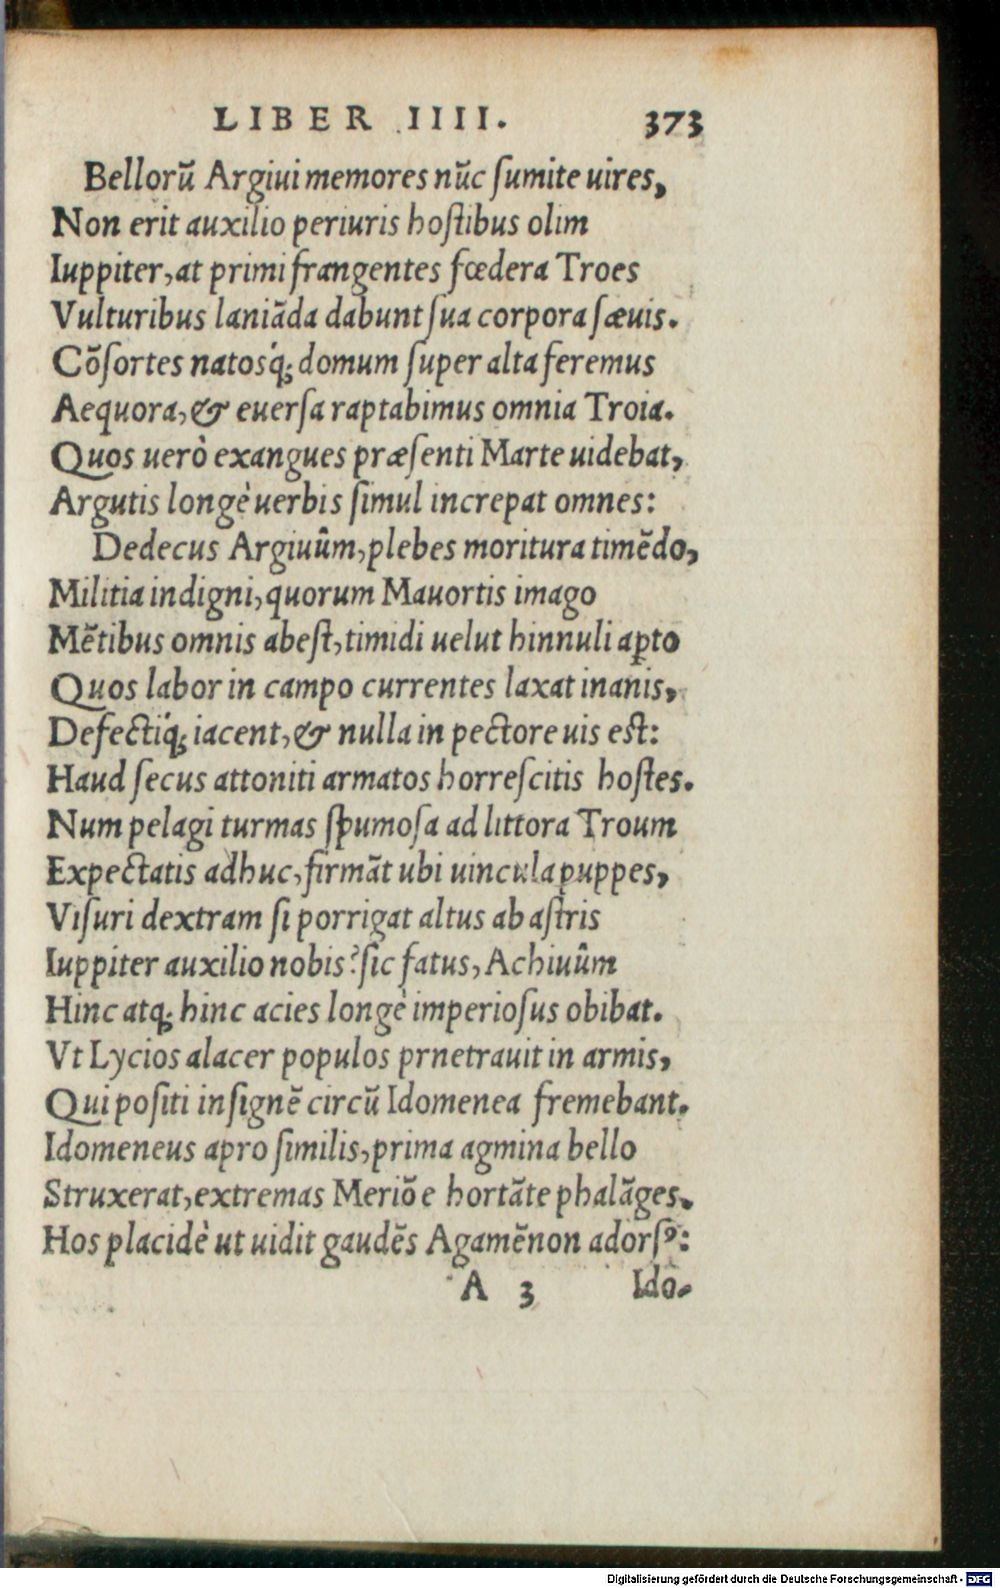 LIBER IIII. 373
Bellorũ Argiui memores nũc ſumite uires,
Non erit auxilio periuris hoſtibus olim
Iuppiter, at primi frangentes fœdera Troes
Vulturibus laniãda dabunt ſua corpora ſæuis.
Cõſortes natosq́; domum ſuper alta feremus
Aequora, & euerſa raptabimus omnia Troia.
Quos uerò exangues præſenti Marte uidebat,
Argutis longè uerbis ſimul increpat omnes:
Dedecus Argiuûm, plebes moritura timẽdo,
Militia indigni, quorum Mauortis imago
Mẽtibus omnis abeſt, timidi uelut hinnuli aꝑto
Quos labor in campo currentes laxat inanis,
Defectiq́; iacent, & nulla in pectore uis eſt:
Haud ſecus attoniti armatos horreſcitis hoſtes.
Num pelagi turmas ſpumoſa ad littora Troum
Expectatis adhuc, firmãt ubi uincula puppes,
Viſuri dextram ſi porrigat altus ab aſtris
Iuppiter auxilio nobis? ſic fatus, Achiuûm
Hinc atq; hinc acies longè imperioſus obibat.
Vt Lycios alacer populos prnetrauit in armis,
Qui poſiti inſignẽ circũ Idomenea fremebant.
Idomeneus apro ſimilis, prima agmina bello
Struxerat, extremas Meriõe hortãte phalãges.
Hos placidè ut uidit gaudẽs Agamẽnon adorſꝰ:
A 3 Ido-
Digitalisierung gefördert durch die Deutsche Forschungsgemeinschaft - DFG